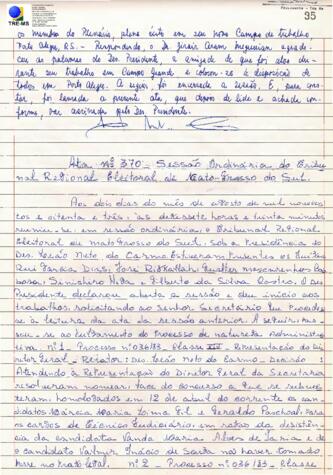 TRE-MS
95
os membros do Plenário, pleno êxito em seu novo Campo de trabalho,
Porto Alegre, RS. - Respondendo, o Dr. Jirair Aram Meguerian agrade-
ceu as palavras do Des. Presidente, a amizade de que foi alvo du-
rante seu trabalho em Campo Grande e colocou-se à disposição de
todos em Porto Alegre. A seguir, foi encerrada a sessão. E, para cons-
tar, foi lavrada a presente ata, que depois de lida e achada con-
forme, vai assinada pelo Des. Presidente.
Ata Nº 370 - Sessão Ordinária do Tribu-
nal Regional Eleitoral de Mato-Grosso do Sul.
Aos dois dias do mês de agosto de mil novecen-
tos e oitenta e três, às dezessete horas e trinta minutos
reuniu-se, em sessão ordinária, o Tribunal Regional
Eleitoral de Mato Grosso do Sul, sob a Presidência do
Des. Leão Neto do Carmo. Estiveram Presentes os Juízes
Rui Garcia Dias, José Rizkallah, Mascarenhas Bar-
bosa, e Gilberto da Silva Castro. O Des.
Presidente declarou aberta a sessão e deu início aos
trabalhos, solicitando ao senhor Secretário que procedes-
se à leitura da ata da sessão anterior. A seguir, pas-
sou-se ao julgamento do processo de natureza administra-
tiva. nº 1 - Processo nº 036/83 - Classe - Representação do Di-
retor Geral - Relator: Des. Leão Neto do Carmo - Decisão:
Atendendo à Representação do Diretor Geral da Secretaria
resolveram nomear, face do concurso a que se subme-
teram, homologado em 12 de abril do corrente os can-
didatos Márcia Maria Lima e Geraldo Paschoal, para
os cargos de Técnico Judiciário, em razão da desistên-
cia da candidata Vanda Maria Alves de Faria e de
o candidato Valmir Inácio de Souza não haver tomado
posse no prazo legal. nº 2 - Processo nº 036/83 - Classe